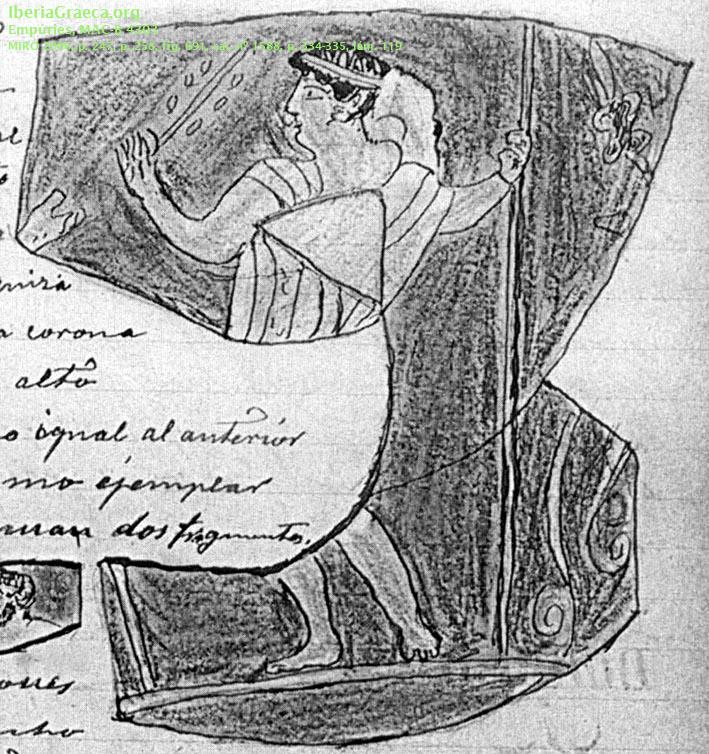 IberiaGraeca.org
Empúries, MAC-B 4301
MIRO 2006, p. 243, p. 258, fig. 691, cat. nº 1588, p. 334-335, lám. 119
corona
alto
o igual al anterior
mo ejemplar
dos fragmentos.